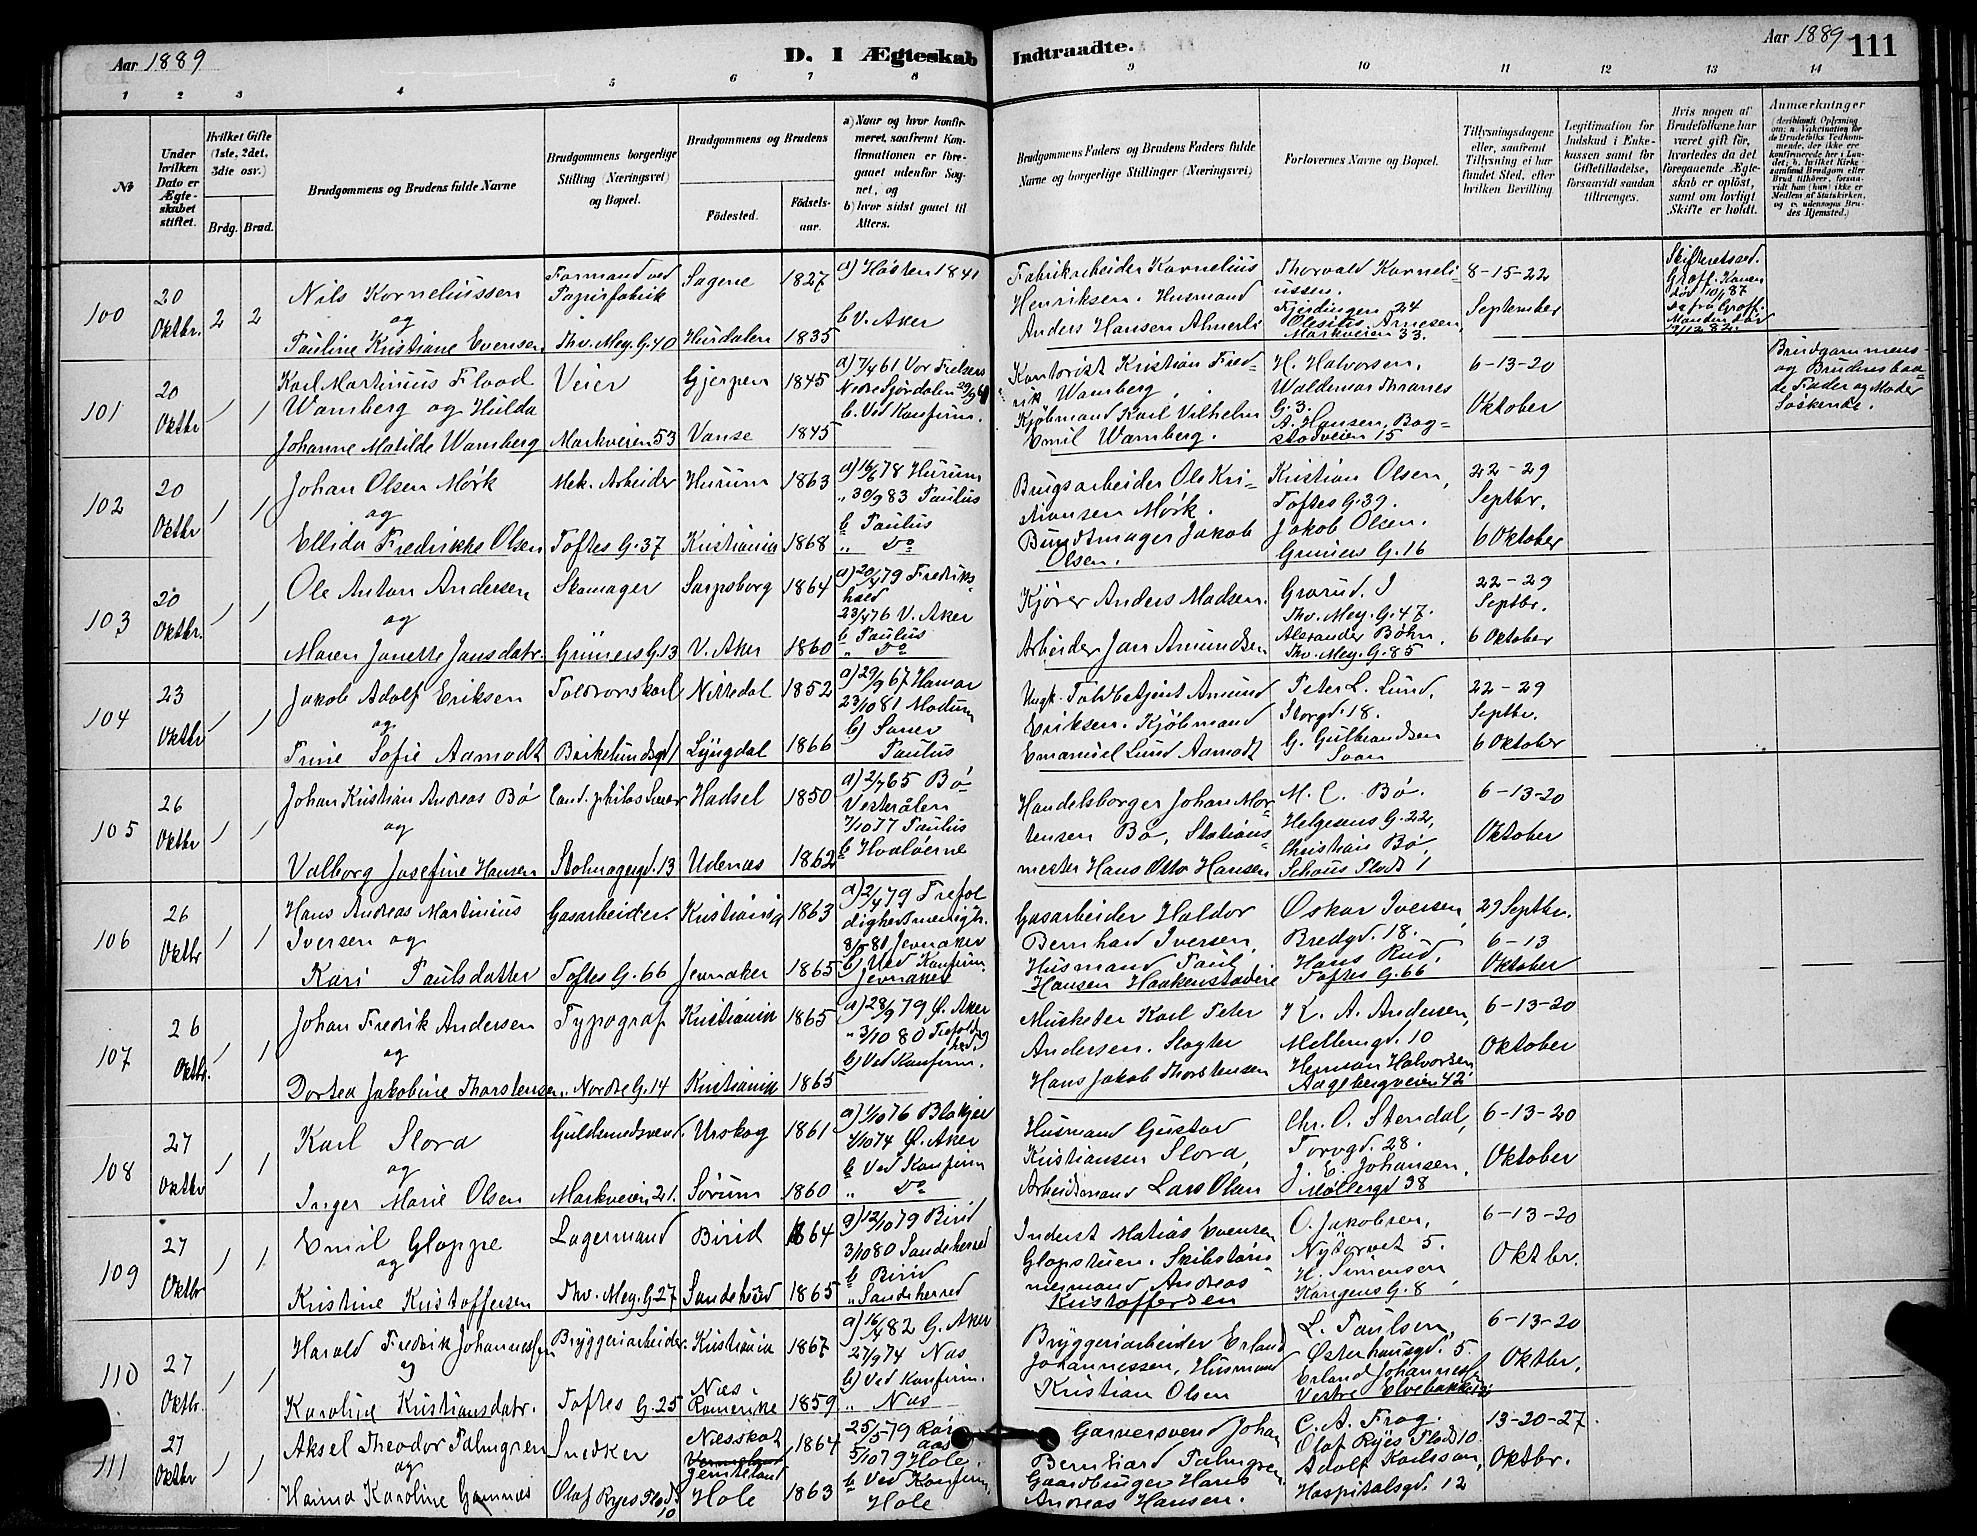 Aar 1889
D. I Ægteskab Indtraadte.
Aar 1889
111
1 2 3 4 5 6 7 8 9 10 11 12 13 14
№
Under hvilken Dato er Ægteskabet stiftet.
Hvilket Gifte (1ste, 2det, 3dte osv.)
Brdg. Brud.
Brudgommens og Brudens fulde Navne
Brudgommens borgerlige Stilling (Næringsvei) og Bopæl.
Brudgommens og Brudens
Fødested.
Fødselsaar.
a) Naar og hvor konfirmeret, saafremt Konfirmationen er foregaaet udenfor Sognet, og
b) hvor sidst gaaet til Alters.
Brudgommens Faders og Brudens Faders fulde Navne og borgerlige Stillinger (Næringsvei)
Forlovernes Navne og Bopæl.
Tillysningsdagene eller, saafremt Tillysning ei har fundet Sted, efter hvilken Bevilling.
Legitimation for Indskud i Enkekassen samt for Giftetilladelse, forsaavidt saadan tiltrænges.
Hvis nogen af Brudefolkene har været gift før, hvorledes da det foregaaende Ægteskab er opløst, samt om lovligt Skifte er holdt.
Anmærkninger
100
20 Oktbr.
2 2
Nils Korneliussen
og
Pauline Kristiane Evensen
Formand ved Papirfabrik
Thv. Mey. G. 40
Sagene 1827
Hurdalen 1835
a) Høsten 1841
b V. Aker
Fabrikarbeider Kornelius
Henriksen. Husmand
Anders Hansen Almerli
Thorvald Korneliussen.
Fjerdingen 24
Arnesen,
Markveien 33.
8-15-22
September
101
20 Oktbr
1 1
Karl Martinius Flood
Wamberg og Hilda
Johanne Matilde Wamberg
Veier
Markveien 53
Gjerpen 1845
Vanse 1845
a) 7/4 61 Vor Frelsers
b. Ved Konfirm.
Kontorist Kristian Fredrik Wamberg,
Kjøbmand Karl Vilhelm
Emil Wamberg.
H. Halvorsen,
Waldemar Thranes
G. 3.
A. Hansen, Bogstadveien 15
6-13-20
Oktober
Brudgommens og Brudens baade Fader og Moder Søskende.
102
20 Oktbr
1 1
Johan Olsen Mørk
og
Ellida Fredrikke Olsen
Mek. Arbeider
Toftes G. 37
Hurum 1863
Kristiania 1868
a) 16/6 78 Hurum
" 30/9 83 Paulus
b Paulus
" Do
Brugsarbeider Ole Kristiansen Mørk.
Bundtmager Jakob
Olsen.
Kristian Olsen,
Toftes G. 39.
Jakob Olsen.
Grüners G. 16
22-29
Septbr.
6 Oktober
103
20 Oktbr.
1 1
Ole Anton Andersen
og
Maren Janette Jansdatr.
Skomager
Grüners G. 13
Sarpsborg 1864
V. Aker 1860
a) 20/4 79 Fredrikshald
23/4 76 V. Aker
b Paulus
" Do
Kjører Anders Madsen.
Arbeider Jan Amundsen
Grorud. J
Thv. Mey. G. 47.
Alexander Bøhn,
Thv. Mey. G. 85
22-29
Septbr.
6 Oktober
104
23 Oktbr
1 1
Jakob Adolf Eriksen
og
Trine Sofie Aamodt
Toldvorskarl
Birkelundsgd 1
Nittedal 1852
Lyngdal 1866
a) 29/9 67 Hamar
23/10 81 Modum
b) Saner
Paulus
Toldbetjent Amund
Eriksen. Kjøbmand
Emanuel Lund Aamodt
Peter L. Lund,
Storgd. 18.
G. Gulbrandsen
22-29
Septbr.
6 Oktober
105
26 Oktbr
1 1
Johan Kristian Andreas Bø
og
Valborg Josefine Hansen
Stolmagergd. 13
Hadsel 1850
Udenæs 1862
a) 2/7 65 Bø
Vesteraalen
7/10 77 Paulus
b Hvaløerne
Handelsborger Johan Mortensen Bø, Stationsmester Hans Otto Hansen
M. C. Bø.
Helgesens G. 22,
Christian Bø,
Schous Plads 1
6-13-20
Oktober
106
26 Oktbr
1 1
Hans Andreas Martinius
Iversen og
Kari Paulsdatter
Gasarbeider
Toftes G. 66
Kristiania 1863
Jevnaker 1865
a) 2/4 79 Trefoldighedsmenigh.
8/5 81 Jevnaker
b) Ved Konfirm.
Jevnaker
Gasarbeider Haldor
Bernhard Iversen,
Husmand Paul
Hansen Haakenstadeie
Oskar Iversen,
Bredgd. 18.
Hans Rud,
Toftes G. 66
29 Septbr.
6-13
Oktober
107
26 Oktbr.
1 1
Johan Fredrik Andersen
og
Dortea Jakobine Thorstensen
Typograf
Nordre G. 14
Kristiania 1865
Kristiania 1865
a) 28/9 79 Ø. Aker
" 3/10 80 Trefoldighed
b) Ved Konfirm.
Musketer Karl Peter
Andersen. Slagter
Hans Jakob Thorstensen
K. A. Andersen,
Mellemgd. 10
Herman Halvorsen
Aagebergveien 42
6-13-20
Oktober
108
27 Oktbr
1 1
Karl Slora
og
Inger Marie Olsen
Guldsmedsvend
Markveien 21.
Urskog 1861
Sørum 1860
a) 1/10 76 Blakjer
4/10 74 Ø. Aker
b Ved Konfirm
" Do
Husmand Gustav
Kristiansen Slora,
Arbeidsmand Lars Olsen
Chr. O. Stendal,
Torvgd. 28.
J. E. Johansen,
Møllergd 38
6-13-20
Oktober
109
27 Oktbr
1 1
Emil Gloppe
og
Kristine Kristoffersen
Lagermand
Thv. Mey. G. 27
Birid 1864
Sandeherred 1865
a) 12/10 79 Birid
3/10 80 Sandeherred
b Birid
" Sandeherred
Inderst Matias Evensen
Glopstuen. Skibstømmermand Andreas
Kristoffersen
O. Jakobsen,
Nytorvet 5.
H. Simensen,
Kongens G. 8
6-13-20
Oktbr.
110
27 Oktbr.
1 1
Harald Fredrik Johannesen
og
Karoline Kristiansdatr.
Bryggeriarbeider
Toftes G. 25
Kristiania 1867
Næs Romerike 1859
a) 16/4 82 G. Aker
27/9 74 Næs
b) Ved Konfirm.
" Næs
Bryggeriarbeider Erland
Johannessen, Husmand
Kristian Olsen
L. Paulsen,
Østerhausgd. 5.
Erland Johannes
Vestre Elvebakke
6-13-20
Oktbr.
111
27 Oktbr
1 1
Aksel Theodor Palmgren
og
Hanna Karoline Gamnæs
Snedker
Olaf Ryes Plads 10
Næsskot
Jemteland 1864
Hole 1863
25/5 79 Røraas
5/10 79 Hole
b Ved Konfirm.
Hole
Garversvend Johan
Bernhard Palmgren,
Gaardbruger Hans
Andreas Hansen.
C. A. Frog.
Olaf Ryes Plads 10
Adolf Karlsson,
Hospitalsgd. 12
13-20-27
Oktbr.